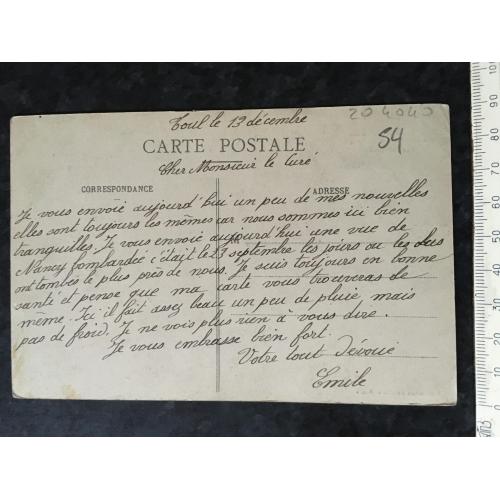 204040
Toul le 13 décembre
54
CARTE POSTALE
Cher Monsieur le Curé
CORRESPONDANCE
ADRESSE
Je vous envoie aujourd'hui un peu de mes nouvelles
elles sont toujours les mêmes car nous sommes ici bien
tranquilles. Je vous envoie aujourd'hui une vue de
Nancy bombardée c'était le 23 septembre les jours ou les obus
ont tombés le plus près de nous. Je suis toujours en bonne
santé et pense que ma carte vous trouveras de
même. Ici il fait assez beau un peu de pluie mais
pas de froid. Je ne vois plus rien à vous dire.
Je vous embrasse bien fort.
Votre tout Dévoué
Emile